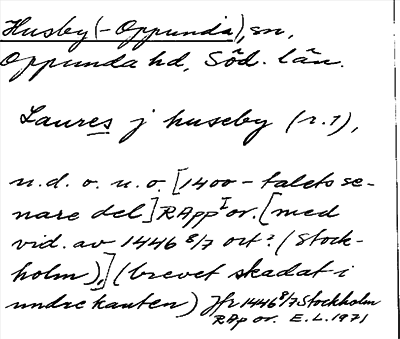 Husby (-Oppunda), sn,
Oppunda hd, Söd. län.
Laures j huseby (r. 1),
u. d. o. u. o. [1400-talets se-
nare del] RAppI or. [med
vid. av 1446 8/7 ort? (Stock-
holm).] (brevet skadat i
undre kanten) Jfr 1446 8/7 Stockholm
RAp or. E.L. 1971